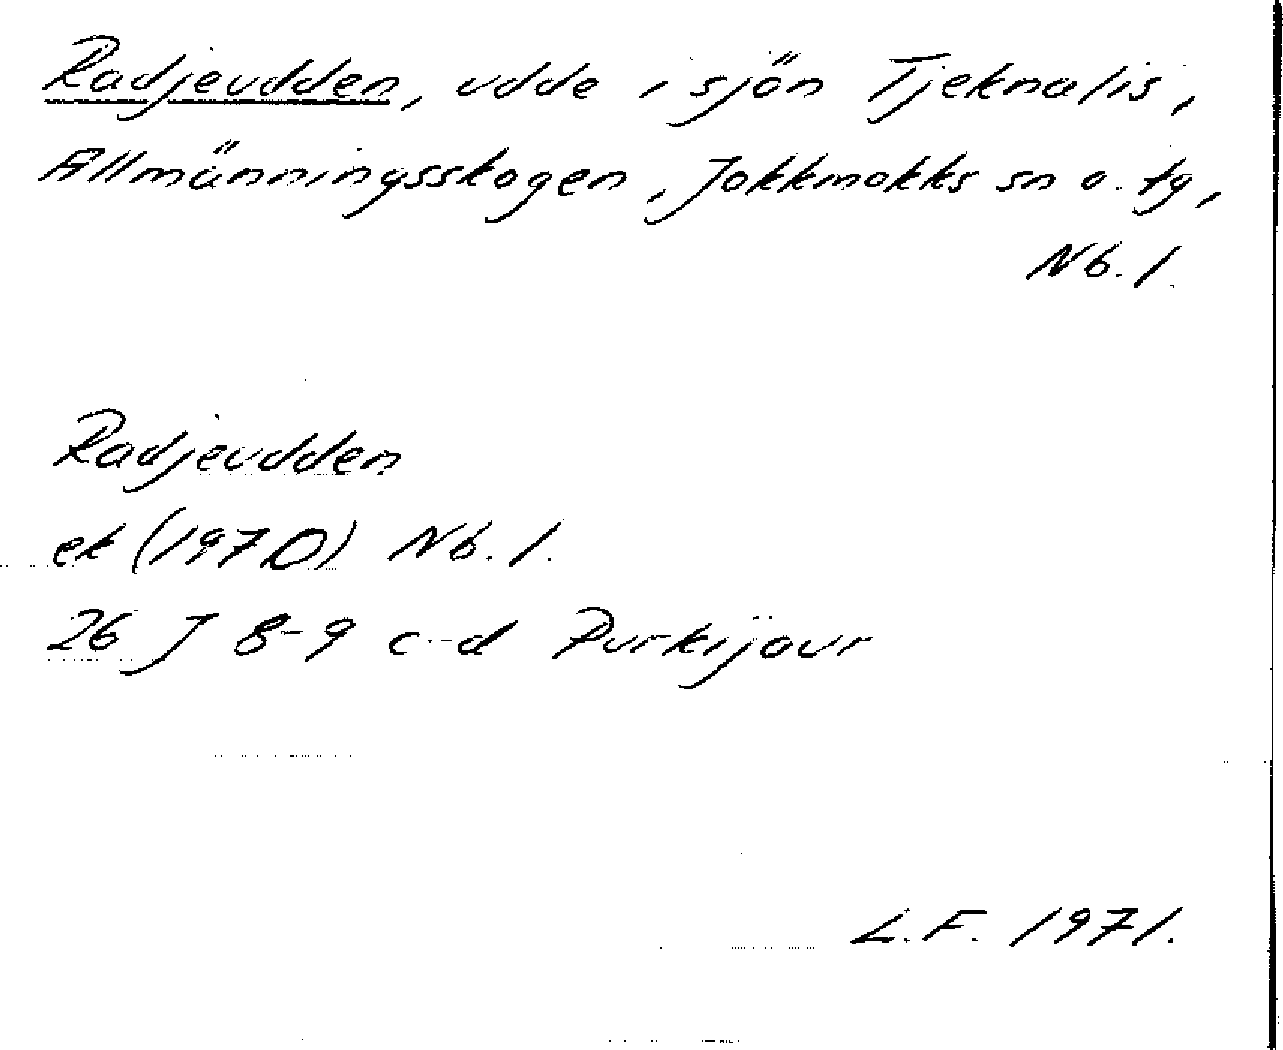 Radjeudden, udde i sjön Tjeknalis,
Allmänningsskogen, Jokkmokks sn o. tg,
Nb. l.
Radjeudden
ek (1970) Nb. l.
26 J 8-9 c-d Purkijaur
L.F. 1971.